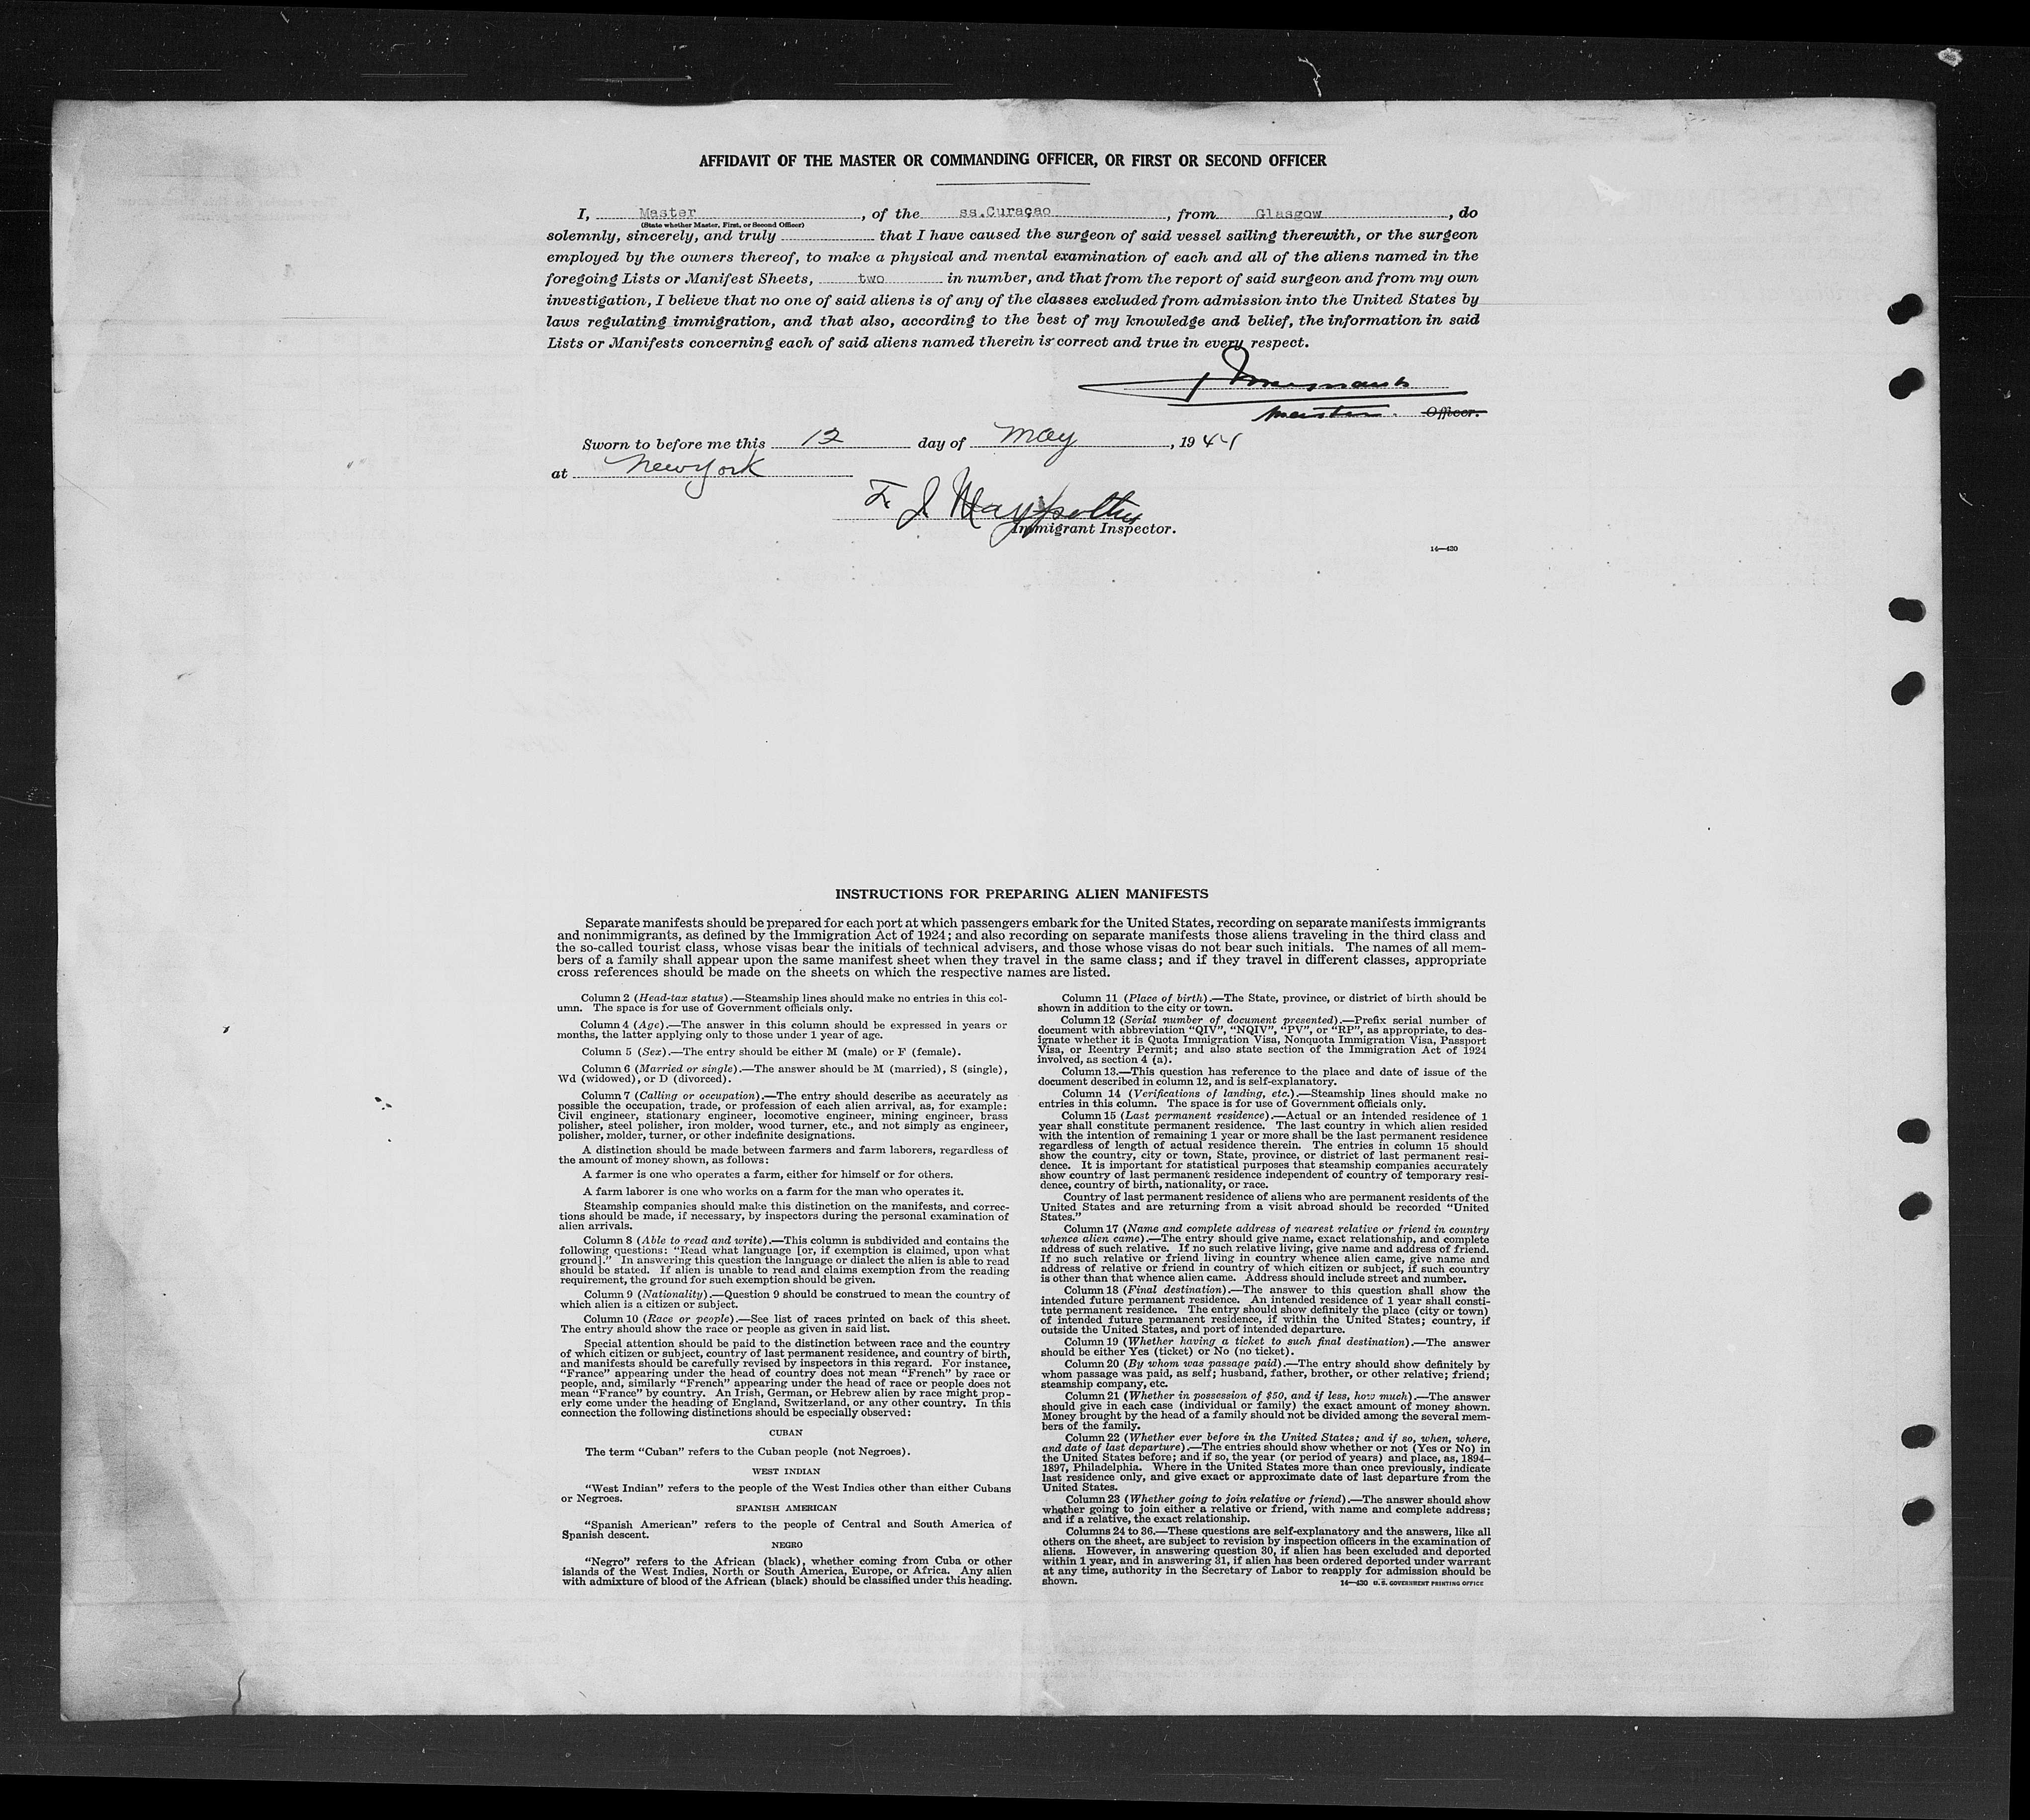 AFFIDAVIT OF THE MASTER OR COMMANDING OFFICER, OR FIRST OR SECOND OFFICER
I, Master, of the ss.Curaçao, from Glasgow, do
(State whether Master, First, or Second Officer)
solemnly, sincerely, and truly that I have caused the surgeon of said vessel sailing therewith, or the surgeon
employed by the owners thereof, to make a physical and mental examination of each and all of the aliens named in the
foregoing Lists or Manifest Sheets, two in number, and that from the report of said surgeon and from my own
investigation, I believe that no one of said aliens is of any of the classes excluded from admission into the United States by
laws regulating immigration, and that also, according to the best of my knowledge and belief, the information in said
Lists or Manifests concerning each of said aliens named therein is correct and true in every respect.
Master. Officer.
Sworn to before me this 12 day of May, 1944
at New York
F. J.
Immigrant Inspector.
14—430
INSTRUCTIONS FOR PREPARING ALIEN MANIFESTS
Separate manifests should be prepared for each port at which passengers embark for the United States, recording on separate manifests immigrants
and nonimmigrants, as defined by the Immigration Act of 1924; and also recording on separate manifests those aliens traveling in the third class and
the so-called tourist class, whose visas bear the initials of technical advisers, and those whose visas do not bear such initials. The names of all mem-
bers of a family shall appear upon the same manifest sheet when they travel in the same class; and if they travel in different classes, appropriate
cross references should be made on the sheets on which the respective names are listed.
Column 2 (Head-tax status).—Steamship lines should make no entries in this col-
umn. The space is for use of Government officials only.
Column 4 (Age).—The answer in this column should be expressed in years or
months, the latter applying only to those under 1 year of age.
Column 5 (Sex).—The entry should be either M (male) or F (female).
Column 6 (Married or single).—The answer should be M (married), S (single),
Wd (widowed), or D (divorced).
Column 7 (Calling or occupation).—The entry should describe as accurately as
possible the occupation, trade, or profession of each alien arrival, as, for example:
Civil engineer, stationary engineer, locomotive engineer, mining engineer, brass
polisher, steel polisher, iron molder, wood turner, etc., and not simply as engineer,
polisher, molder, turner, or other indefinite designations.
A distinction should be made between farmers and farm laborers, regardless of
the amount of money shown, as follows:
A farmer is one who operates a farm, either for himself or for others.
A farm laborer is one who works on a farm for the man who operates it.
Steamship companies should make this distinction on the manifests, and correc-
tions should be made, if necessary, by inspectors during the personal examination of
alien arrivals.
Column 8 (Able to read and write).—This column is subdivided and contains the
following questions: "Read what language [or, if exemption is claimed, upon what
ground]." In answering this question the language or dialect the alien is able to read
should be stated. If alien is unable to read and claims exemption from the reading
requirement, the ground for such exemption should be given.
Column 9 (Nationality).—Question 9 should be construed to mean the country of
which alien is a citizen or subject.
Column 10 (Race or people).—See list of races printed on back of this sheet.
The entry should show the race or people as given in said list.
Special attention should be paid to the distinction between race and the country
of which citizen or subject, country of last permanent residence, and country of birth,
and manifests should be carefully revised by inspectors in this regard. For instance,
"France" appearing under the head of country does not mean "French" by race or
people, and, similarly "French" appearing under the head of race or people does not
mean "France" by country. An Irish, German, or Hebrew alien by race might prop-
erly come under the heading of England, Switzerland, or any other country. In this
connection the following distinctions should be especially observed:
CUBAN
The term "Cuban" refers to the Cuban people (not Negroes).
WEST INDIAN
"West Indian" refers to the people of the West Indies other than either Cubans
or Negroes.
SPANISH AMERICAN
"Spanish American" refers to the people of Central and South America of
Spanish descent.
NEGRO
"Negro" refers to the African (black), whether coming from Cuba or other
islands of the West Indies, North or South America, Europe, or Africa. Any alien
with admixture of blood of the African (black) should be classified under this heading.
Column 11 (Place of birth).—The State, province, or district of birth should be
shown in addition to the city or town.
Column 12 (Serial number of document presented).—Prefix serial number of
document with abbreviation "QIV", "NQIV", "PV", or "RP", as appropriate, to des-
ignate whether it is Quota Immigration Visa, Nonquota Immigration Visa, Passport
Visa, or Reentry Permit; and also state section of the Immigration Act of 1924
involved, as section 4 (a).
Column 13.—This question has reference to the place and date of issue of the
document described in column 12, and is self-explanatory.
Column 14 (Verifications of landing, etc.).—Steamship lines should make no
entries in this column. The space is for use of Government officials only.
Column 15 (Last permanent residence).—Actual or an intended residence of 1
year shall constitute permanent residence. The last country in which alien resided
with the intention of remaining 1 year or more shall be the last permanent residence
regardless of length of actual residence therein. The entries in column 15 should
show the country, city or town, State, province, or district of last permanent resi-
dence. It is important for statistical purposes that steamship companies accurately
show country of last permanent residence independent of country of temporary resi-
dence, country of birth, nationality, or race.
Country of last permanent residence of aliens who are permanent residents of the
United States and are returning from a visit abroad should be recorded "United
States."
Column 17 (Name and complete address of nearest relative or friend in country
whence alien came).—The entry should give name, exact relationship, and complete
address of such relative. If no such relative living, give name and address of friend.
If no such relative or friend living in country whence alien came, give name and
address of relative or friend in country of which citizen or subject, if such country
is other than that whence alien came. Address should include street and number.
Column 18 (Final destination).—The answer to this question shall show the
intended future permanent residence. An intended residence of 1 year shall consti-
tute permanent residence. The entry should show definitely the place (city or town)
of intended future permanent residence, if within the United States; country, if
outside the United States, and port of intended departure.
Column 19 (Whether having a ticket to such final destination).—The answer
should be either Yes (ticket) or No (no ticket).
Column 20 (By whom was passage paid).—The entry should show definitely by
whom passage was paid, as self; husband, father, brother, or other relative; friend;
steamship company, etc.
Column 21 (Whether in possession of $50, and if less, how much).—The answer
should give in each case (individual or family) the exact amount of money shown.
Money brought by the head of a family should not be divided among the several mem-
bers of the family.
Column 22 (Whether ever before in the United States; and if so, when, where,
and date of last departure).—The entries should show whether or not (Yes or No) in
the United States before; and if so, the year (or period of years) and place, as, 1894–
1897, Philadelphia. Where in the United States more than once previously, indicate
last residence only, and give exact or approximate date of last departure from the
United States.
Column 23 (Whether going to join relative or friend).—The answer should show
whether going to join either a relative or friend, with name and complete address;
and if a relative, the exact relationship.
Columns 24 to 36.—These questions are self-explanatory and the answers, like all
others on the sheet, are subject to revision by inspection officers in the examination of
aliens. However, in answering question 30, if alien has been excluded and deported
within 1 year, and in answering 31, if alien has been ordered deported under warrant
at any time, authority in the Secretary of Labor to reapply for admission should be
shown.
14—430 U. S. GOVERNMENT PRINTING OFFICE